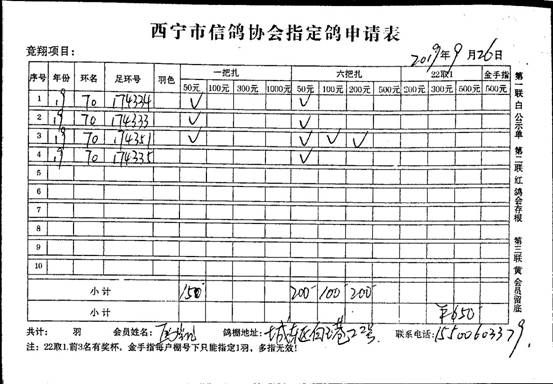 西宁市信鸽协会指定鸽申请表
竞翔项目： 2019年9月26日
序号 年份 环名 足环号 羽色 一把扎 六把扎 22取1 金手指
50元 100元 300元 1000元 50元 100元 200元 500元 200元 300元 500元 500元
1 19 70 174334 ✓ ✓
2 19 70 174333 ✓ ✓
3 19 70 174351 ✓ ✓ ✓ ✓
4 19 70 174335 ✓
5
6
7
8
9
10
小计 150 200 100 200
小计 ¥650
共计： 羽 会员姓名： 鸽棚地址： 城东区 巷22号 联系电话：15500603379
注：22取1.前3名有奖杯，金手指每户棚号下只能指定1羽，多指无效！
第一联白 公示单 第二联红 鸽会存根 第三联黄 会员留底